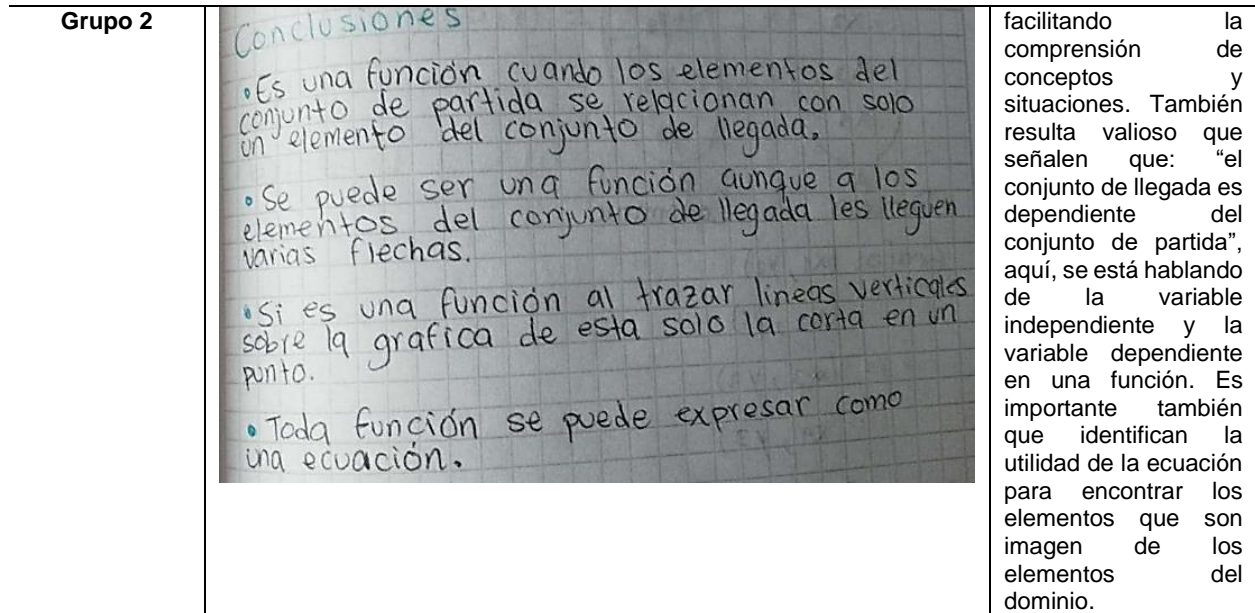 Grupo 2
Conclusiones
•Es una función cuando los elementos del
conjunto de partida se relacionan con solo
un elemento del conjunto de llegada.
•Se puede ser una función aunque a los
elementos del conjunto de llegada les lleguen
varias flechas.
•Si es una función al trazar lineas verticales
sobre la grafica de esta solo la corta en un
punto.
•Toda función se puede expresar como
una ecuación.
facilitando la
comprensión de
conceptos y
situaciones. También
resulta valioso que
señalen que: “el
conjunto de llegada es
dependiente del
conjunto de partida”,
aquí, se está hablando
de la variable
independiente y la
variable dependiente
en una función. Es
importante también
que identifican la
utilidad de la ecuación
para encontrar los
elementos que son
imagen de los
elementos del
dominio.